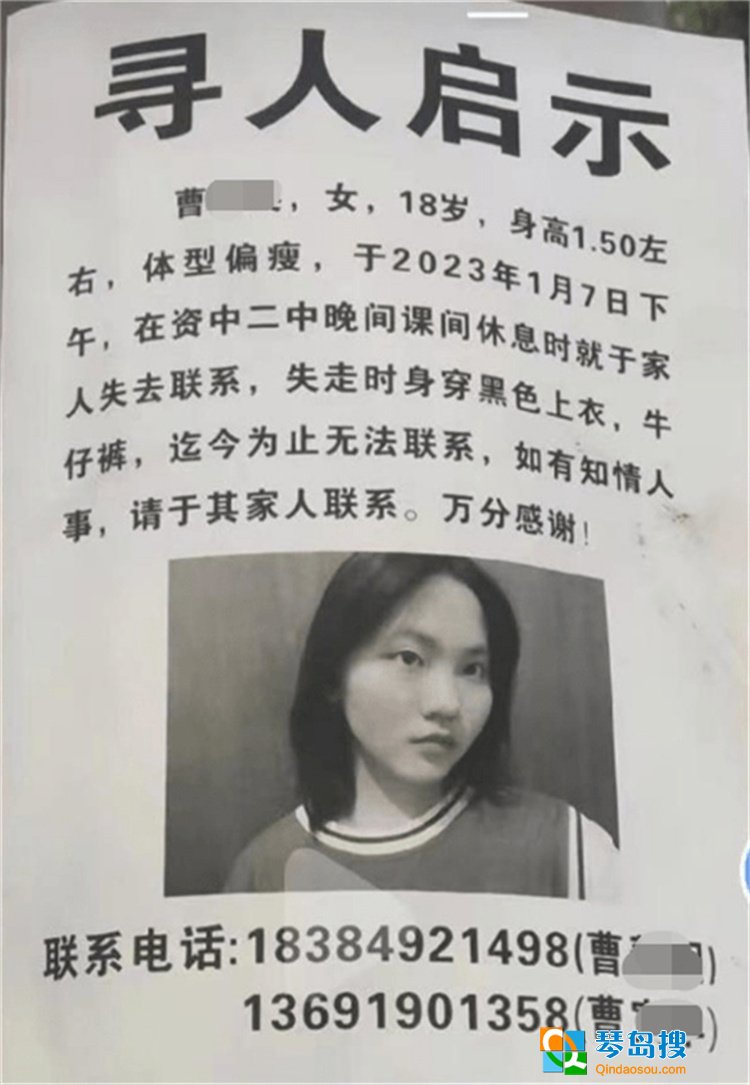 寻人启示
曹，女，18岁，身高1.50左
右，体型偏瘦，于2023年1月7日下
午，在资中二中晚间课间休息时就于家
人失去联系，失走时身穿黑色上衣，牛
仔裤，迄今为止无法联系，如有知情人
事，请于其家人联系。万分感谢！
联系电话:18384921498(曹)
13691901358(曹)
琴岛搜
Qindaosou.com